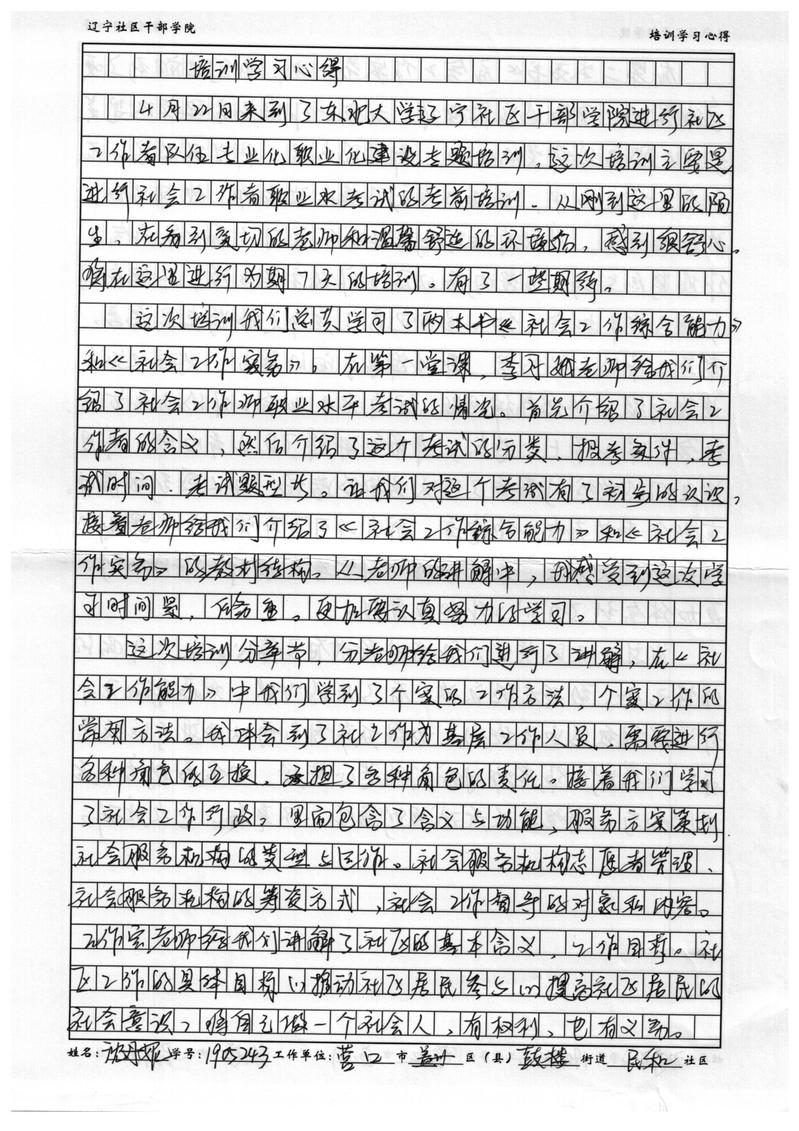 辽宁社区干部学院
培训学习心得
培训学习心得
4月22日来到了东北大学辽宁社区干部学院进行社区
工作者队伍专业化职业化建设专题培训,这次培训主要是
进行社会工作者职业水平考试的考前培训。从刚到这里的陌
生,在看到亲切的老师和温馨舒适的环境后,感到很舒心。
将在这里进行为期7天的培训。有了一些期待。
这次培训我们总共学习了两本书《社会工作综合能力》
和《社会工作实务》。在第一堂课,李老师给我们介
绍了社会工作师职业水平考试的情况。首先介绍了社会工
作者的含义,然后介绍了这个考试的分类,报考条件,考
试时间.考试题型等。让我们对这个考试有了初步的认识,
接着老师给我们介绍了《社会工作综合能力》和《社会工
作实务》的教材结构。从老师的讲解中,我感受到这次学
习时间紧,任务重。更加要认真努力的学习。
这次培训分章节,分老师给我们进行了讲解,在《社
会工作能力》中我们学到了个案的工作方法,个案工作的
常用方法。我体会到了社工作为基层工作人员,需要进行
各种角色的互换,承担了各种角色的责任。接着我们学习
了社会工作行政,里面包含了含义与功能,服务方案策划
社会服务机构的类型与运作。社会服务机构志愿者管理、
社会服务机构的筹资方式,社会工作督导的对象和内容。
工作室老师给我们讲解了社区的基本含义,工作目标。社
区工作的具体目标(1)推动社区居民参与(2)提高社区居民的
社会意识,将自己做一个社会人,有权利,也有义务。
姓名: 学号:1905243 工作单位:营口 市 盖州 区(县) 鼓楼 街道 民和 社区